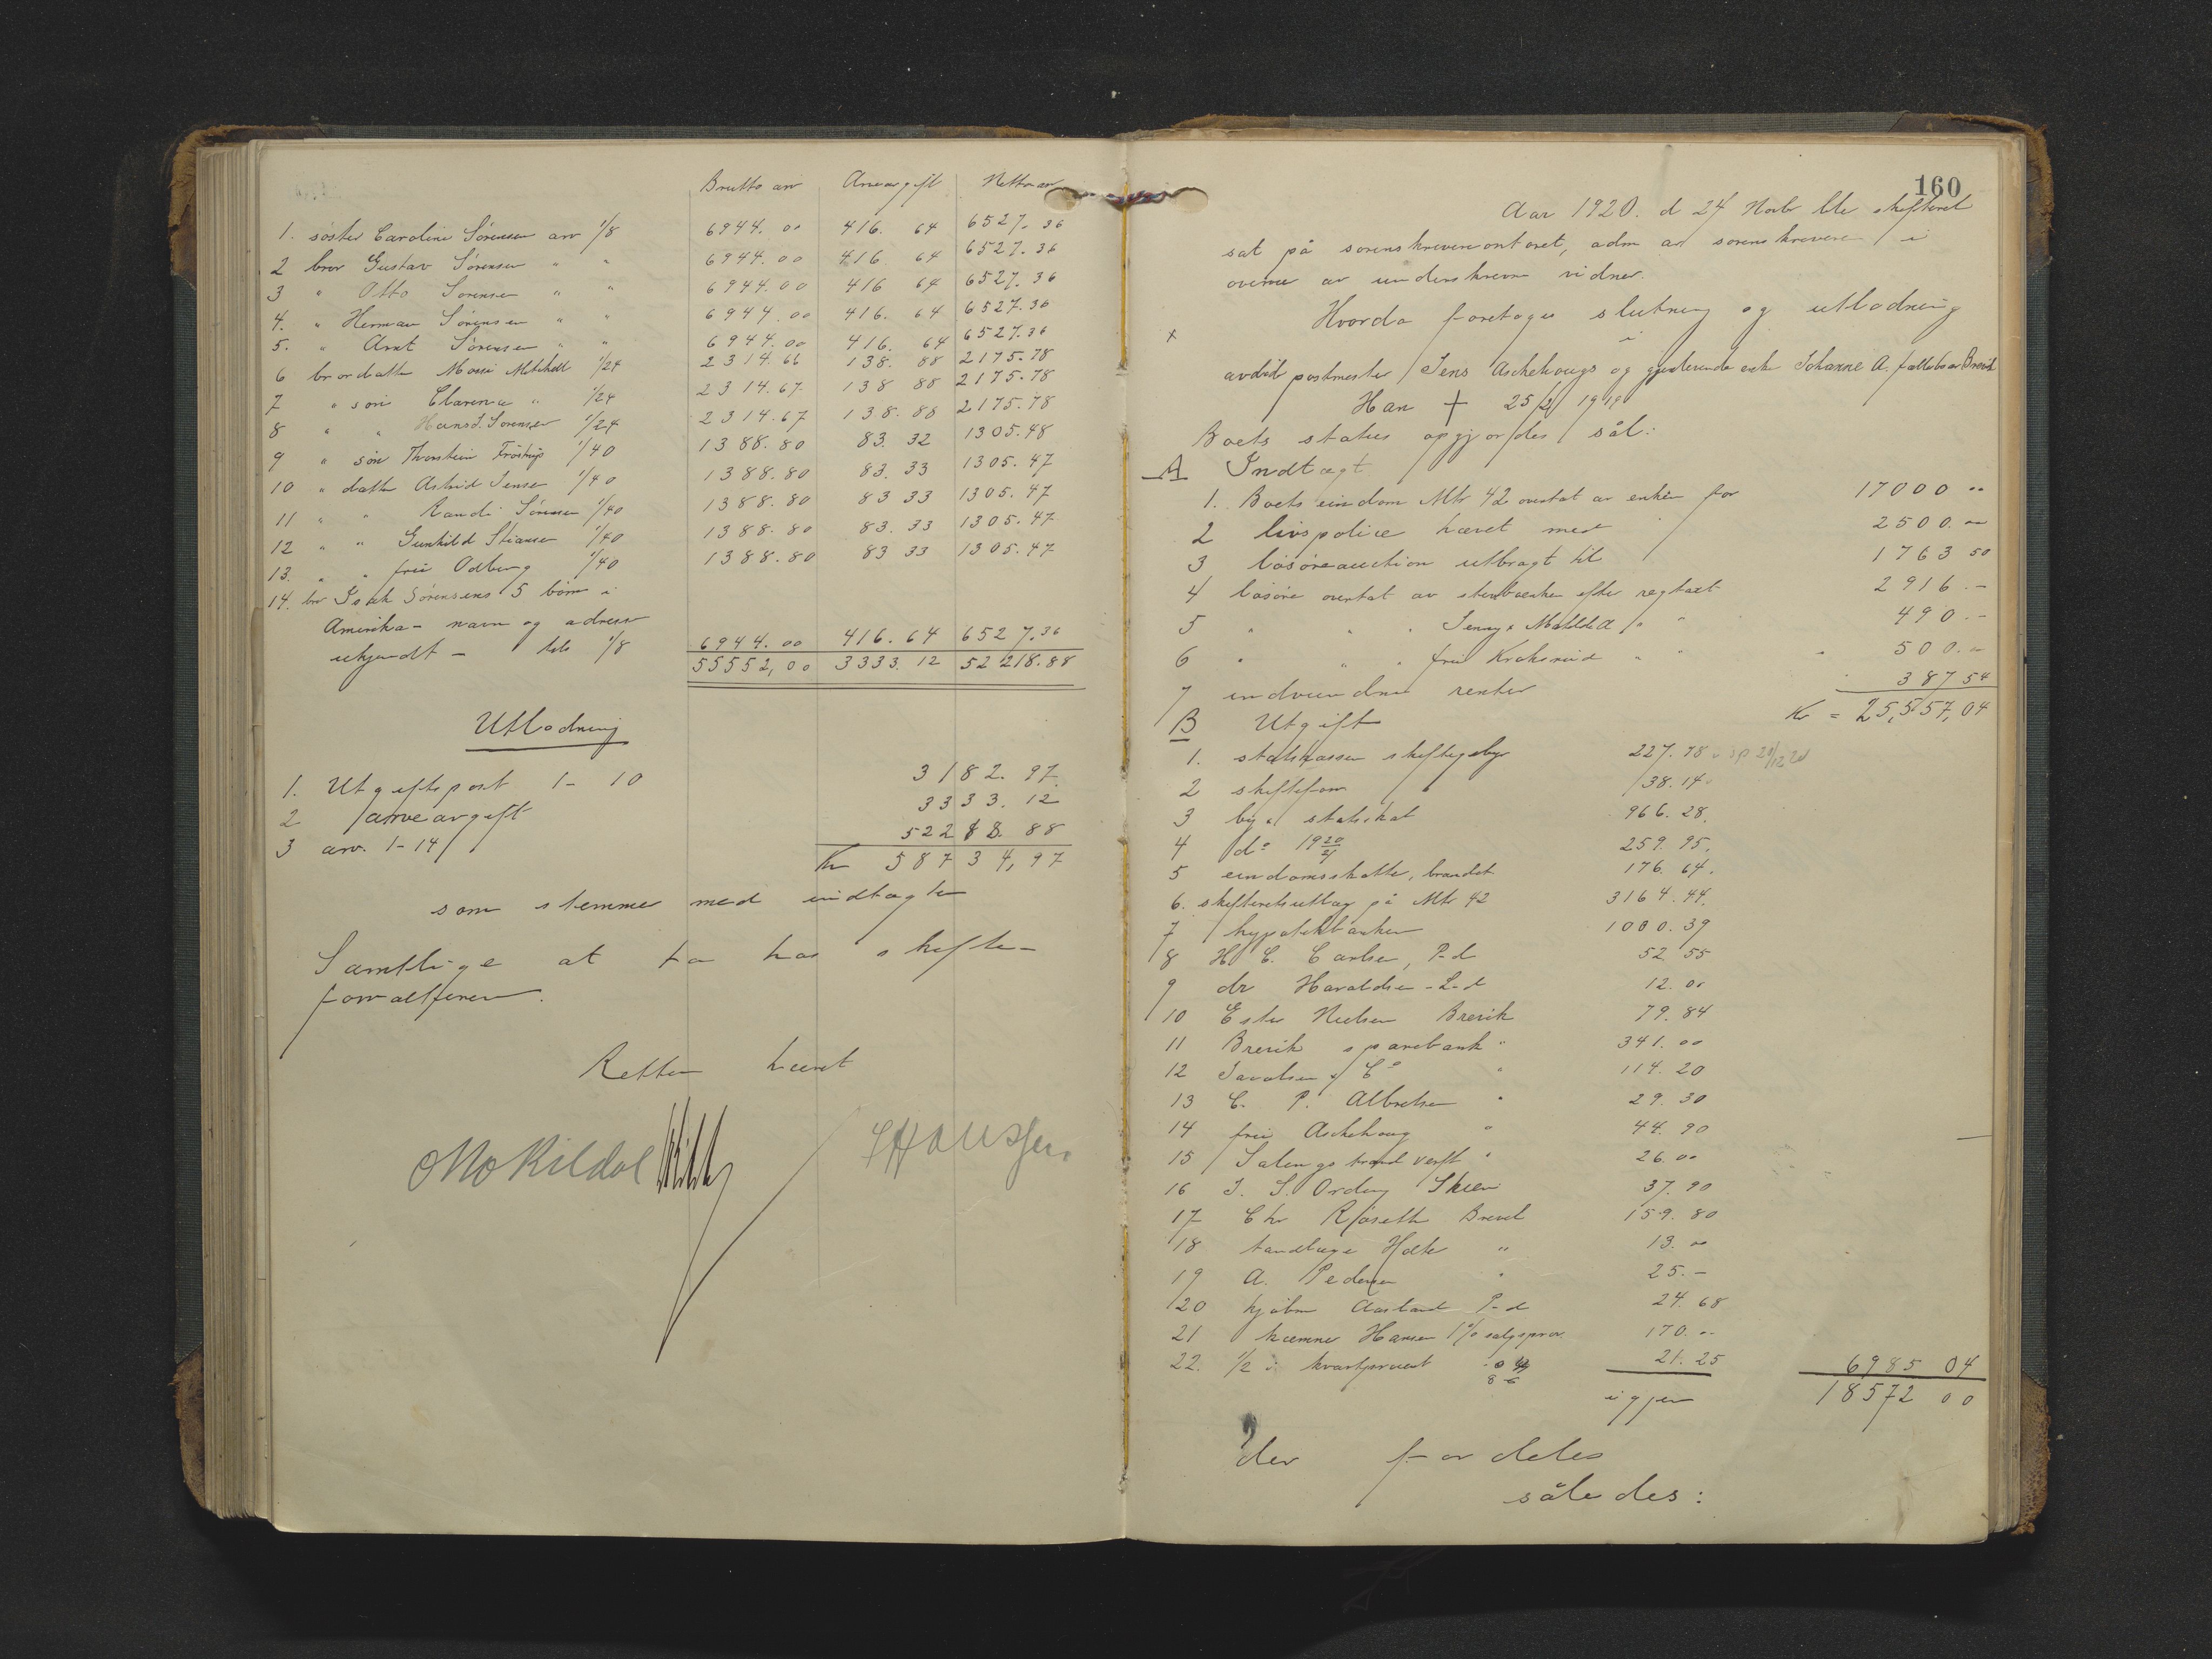 Brutto arv Arveavgift Netto arv
1. søster Caroline Sørensen arv 1/8 6944.00 416.64 6527.36
2 bror Gustav Sørensen " " 6944.00 416 64 6527.36
3 " Otto Sørensen " " 6944.00 416 64 6527.36
4. " Herman Sørensen " " 6944.00 416.64 6527.36
5. " Arnt Sørensen " " 6944.00 416.64 6527.36
6 brordatter Mitchell 1/24 2314.66 138.88 2175.78
7 " søn Clarence " 1/24 2314.67 138 88 2175.78
8 " " Hans J. Sørensen 1/24 2314.67 138.88 2175.78
9 " søn Thorstein Frostrup 1/40 1388.80 83.32 1305.48
10 " datter Astrid Jensen 1/40 1388.80 83.33 1305.47
11 " " Randi Sørensen 1/40 1388.80 83 33 1305.47
12 " " Gunhild Stiansen 1/40 1388.80 83.33 1305.47
13. " " frk Odberg 1/40 1388.80 83 33 1305.47
14. bror Isak Sørensens 5 børn i
Amerika - navn og adresse
ukjendt - tils 1/8 6944.00 416.64 6527.36
55552,00 3333.12 52218.88
Utlodning
1. Utgiftspost 1-10 3182.97
2 arveavgift 3333.12
3 arv. 1-14 52218.88
Kr 58734,97
som stemmer med indtægten
Samtlige at ta hos skifte-
forvalteren.
Retten hævet
Otto Kildal
160
Aar 1920. d 24 Novbr ble skifteret
sat på sorenskriverkontoret, adm av sorenskriveren i
overvær av underskrevne vidner.
Hvorda foretoges slutning og utlodning
i
x
avdød postmester Jens Aschehougs og gjenlevende enke Johanne A. fællesbo Brevik
Han + 25/2 1919
Boets status opgjordes sål:
A Indtægt
1. Boets eiendom Mtr 42 overtat av enken for 17000 "
2 livspolice hævet med 2500."
3 løsøreauction utbragt til 1763 50
4 løsøre overtat av stervboenken efter regtaxt 2916.-
5 " " " Jenny & Mathilde A " " 490.-
6 " " " frk Krohsveid " " 500.-
7 indvundne renter 387 54
Kr = 25,557,04
B Utgift
1. statskassen skiftegebyr 227.78
2 skifteforv 138.14
3 by & statsskat 966.28.
4 do 1920/21 259.95.
5 eiendomsskatte, brandct 176.64.
6. skifteretsutlæg på Mtr 42 3164.44.
7 hypotekbanken 1000.39
8 H C. Carlsen, P-d 52 55
9 dr Haraldsen - L-d 12.00
10 Ester Nielsen Brevik 79.84
11 Brevik sparebank " 341.00
12 & Co " 114.20
13 C. P. Albretsen " 29.30
14 frk Aschehoug " 44.90
15 verft " 26.00
16 J. S. Ording Skien 37.90
17 Chr Røseth Brevik 159.80
18 tandlæge Holte " 13.00
19 A. Pedersen " 25.-
20 kjøbm Aasland P-d 24.68
21 kæmner Hansen 1% salgsprov. 170."
22. 1/2 i kvartprocent 21.25 6985 04
igjen 18572 00
der fordeles
således: